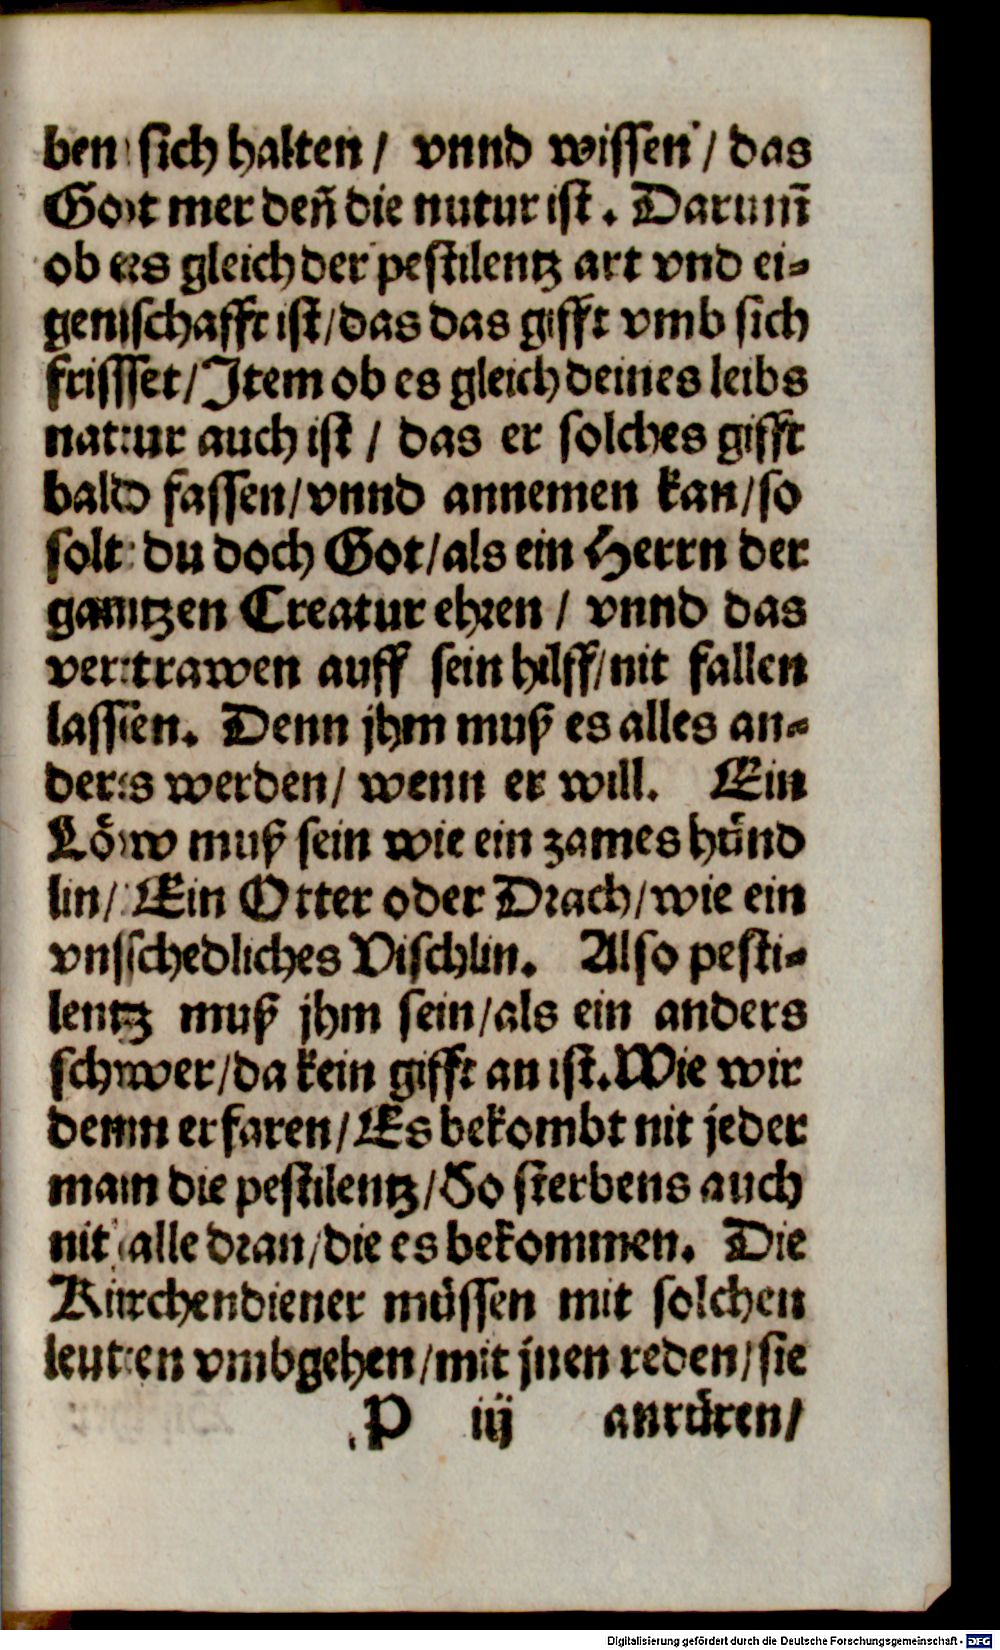 ben sich halten / vnnd wissen / das
Got mer deñ die nutur ist. Darum̃
ob es gleich der pestilentz art vnd ei-
genschafft ist / das das gifft vmb sich
frisset / Item ob es gleich deines leibs
natur auch ist / das er solches gifft
bald fassen / vnnd annemen kan / so
solt du doch Got / als ein Herrn der
gantzen Creatur ehren / vnnd das
vertrawen auff sein hilff / nit fallen
lassen. Denn jhm muß es alles an-
ders werden / wenn er will. Ein
Löw muß sein wie ein zames hünd
lin / Ein Otter oder Drach / wie ein
vnschedliches Vischlin. Also pesti-
lentz muß jhm sein / als ein anders
schwer / da kein gifft an ist. Wie wir
denn erfaren / Es bekombt nit jeder
man die pestilentz / So sterbens auch
nit alle dran / die es bekommen. Die
Kirchendiener müssen mit solchen
leuten vmbgehen / mit jnen reden / sie
P iij anrüren /
Digitalisierung gefördert durch die Deutsche Forschungsgemeinschaft - DFG